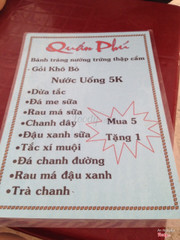 Quán Phú
Bánh tráng nướng trứng thập cẩm
- Gỏi Khô Bò
Nước Uống 5K
• Dừa tắc
• Đá me sữa
• Rau má sữa
• Chanh dây
• Đậu xanh sữa
• Tắc xí muội
• Đá chanh đường
• Rau má đậu xanh
• Trà chanh
Mua 5
Tặng 1